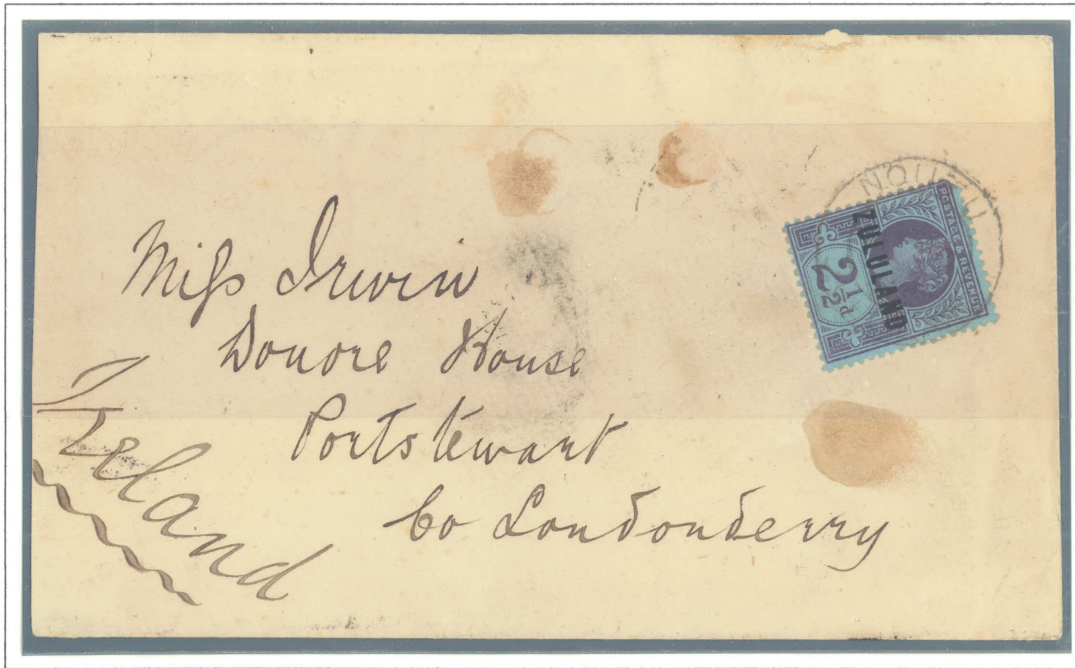 NQUTU
POSTAGE & REVENUE
ZULULAND
2½d
Miss Irwin
Donore House
Portstewart
Co Londonderry
Ireland